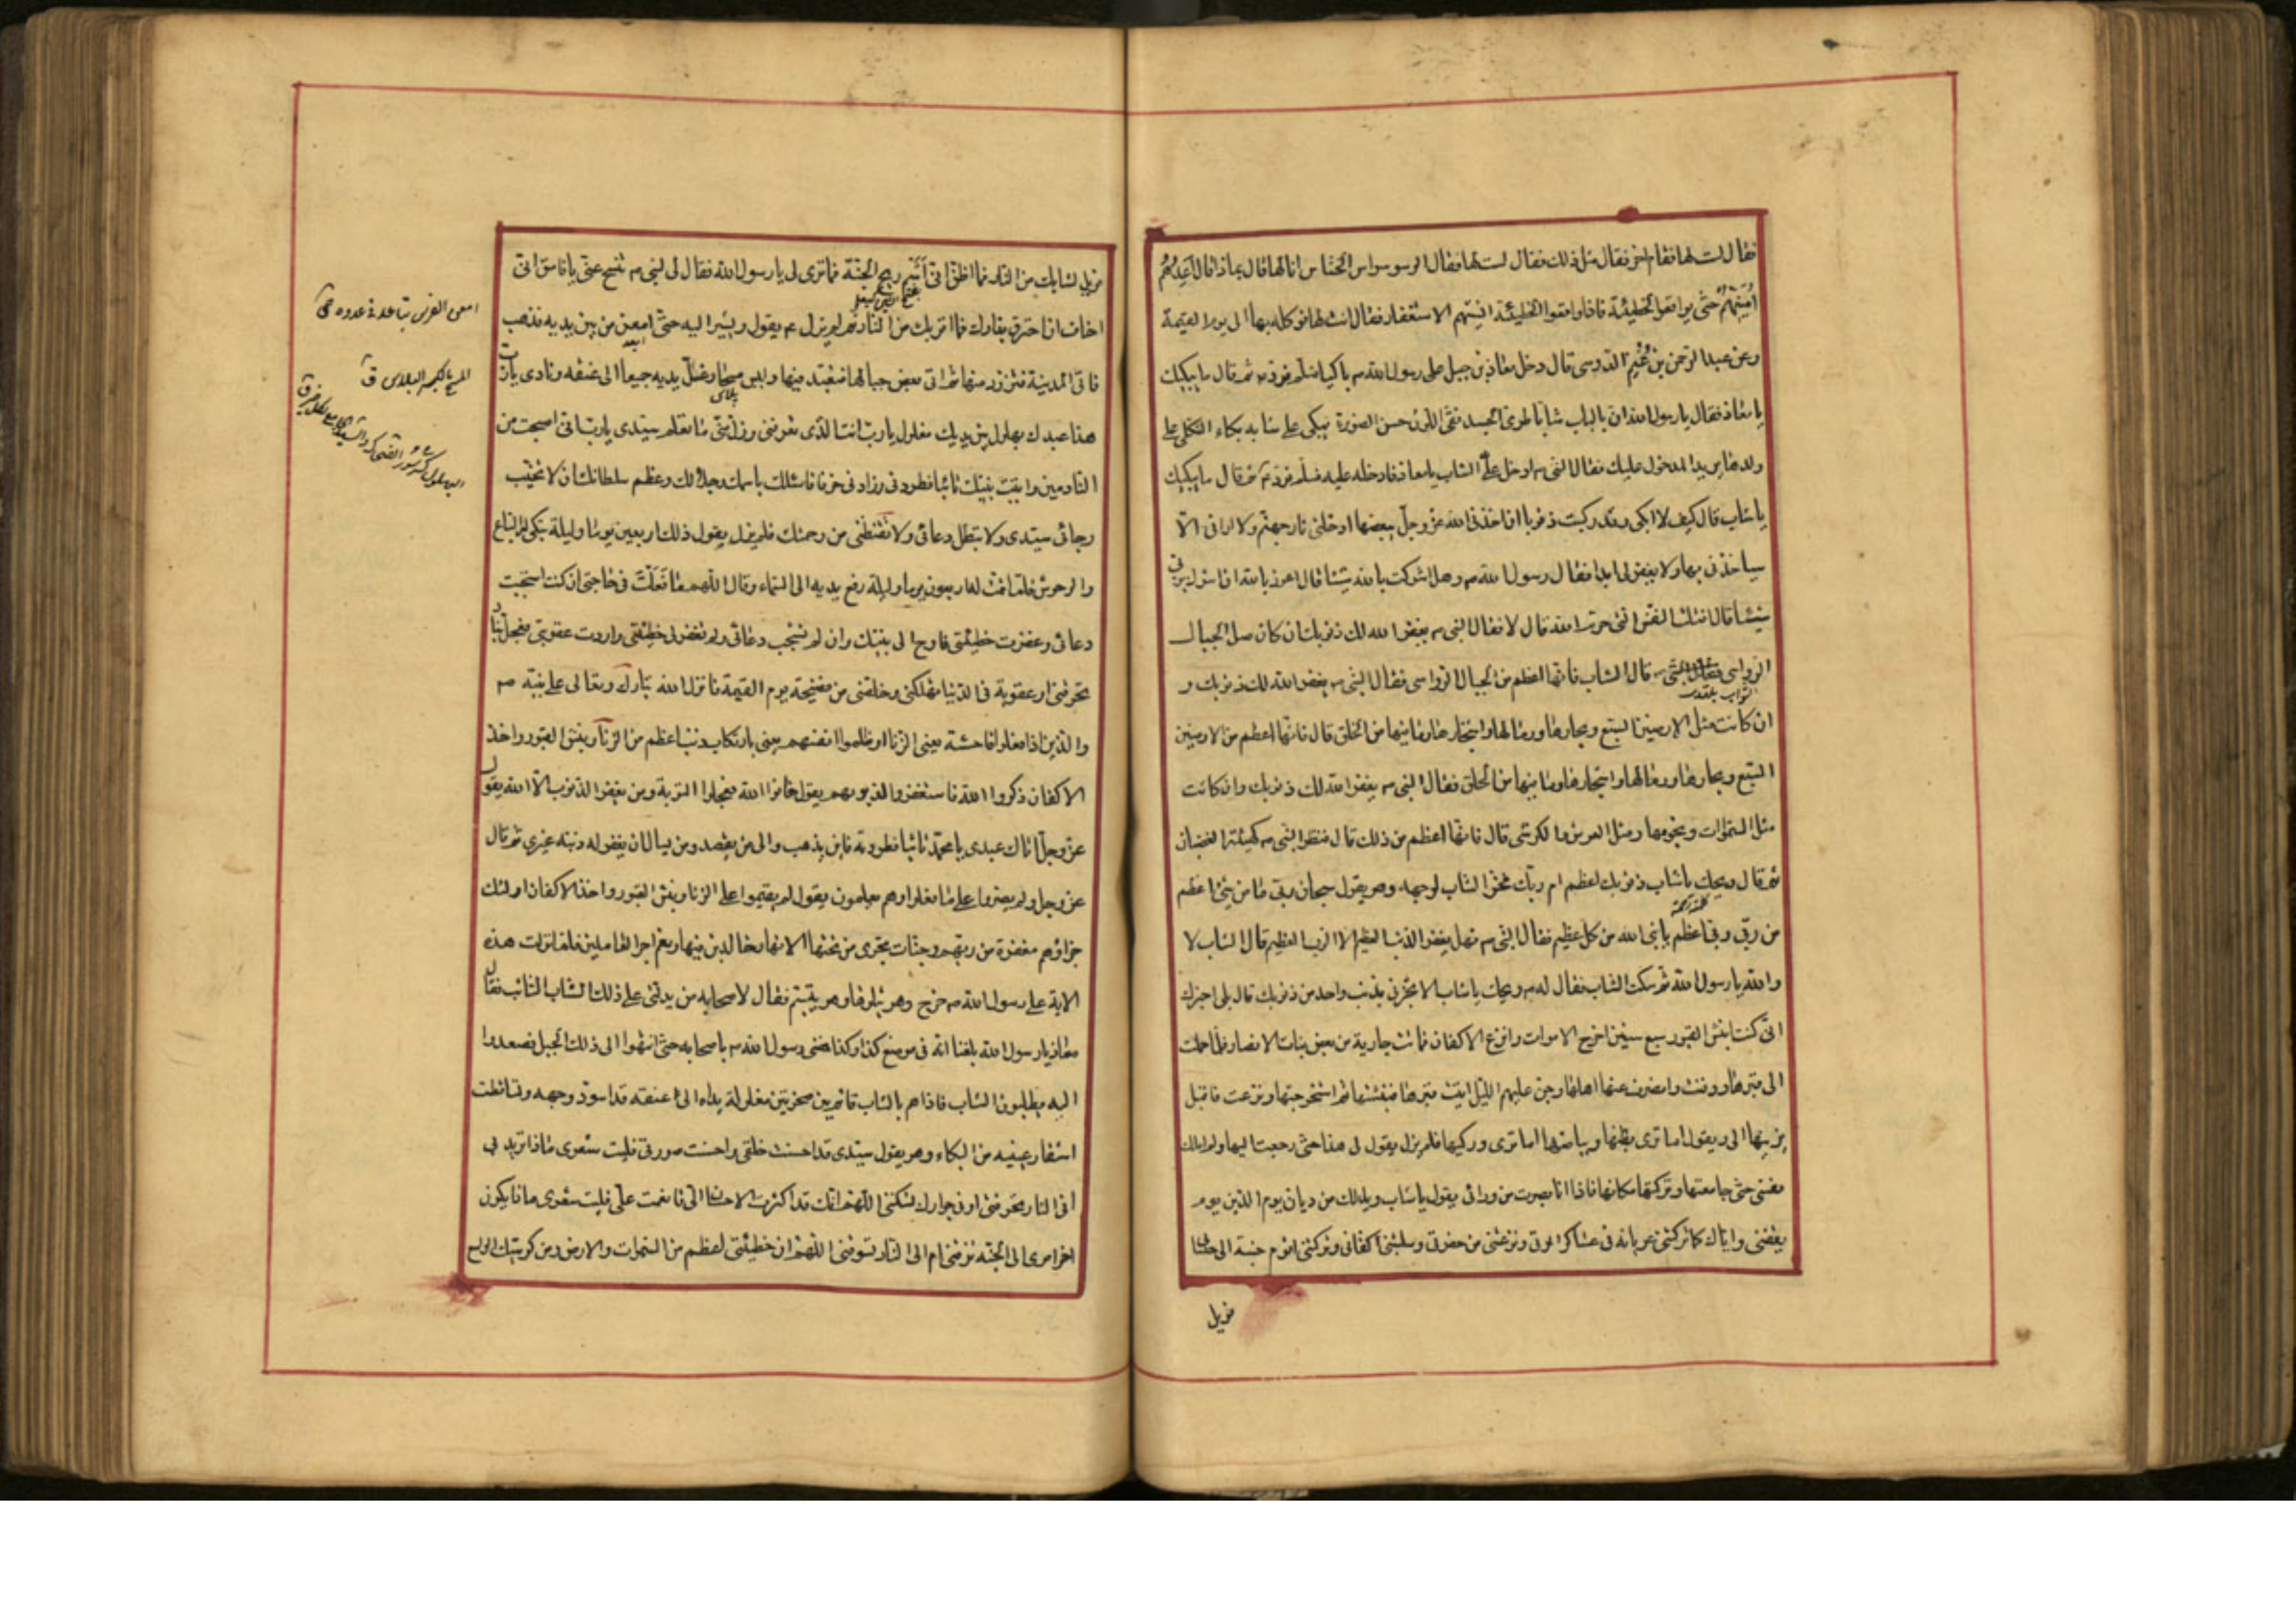 فقال لست لها فقام اخر فقال مثل ذلك فقال لست لها فقال الوسواس الخناس انا لها قال بماذا قال اعدهم
امنيهم حتى يواقعوا الخطيئة فاذا واقعوا الخطيئة انسيتهم الاستغفار فقال انت لها فوكله بها الى يوم القيمة
وعن عبد الرحمن بن غنم الدوسى قال دخل معاذ بن جبل على رسول الله ص باكيا فسلم فرد ص ثم قال ما يبكيك
يا معاذ فقال يا رسول الله ان بالباب شابا طرى الجسد نقى اللون حسن الصورة يبكى على شبابه بكاء الثكلى على
ولدها يريد الدخول عليك فقال النبى ص ادخل على الشاب يا معاذ فادخله عليه فسلم فرد ع ثم قال ما يبكيك
يا شاب قال كيف لا ابكى وقد ركبت ذنوبا ان اخذنى الله عز وجل ببعضها ادخلنى نار جهنم ولا ارانى الا
سياخذنى بها ولا يغفر لى ابدا فقال رسول الله ص وهل اشركت بالله شيئا قال اعوذ بالله ان اشرك بربى
شيئا قال اقتلت النفس التى حرم الله قال لا فقال النبى ص يغفر الله لك ذنوبك ان كان مثل الجبال
الرواسى قال الشاب فانها اعظم من الجبال الرواسى فقال النبى ص يغفر الله لك ذنوبك و
ان كانت مثل الارضين السبع وبحارها ورمالها واشجارها وما فيها من الخلق قال فانها اعظم من الارضين
السبع وبحارها ورمالها واشجارها وما فيها من الخلق فقال النبى ص يغفر الله لك ذنوبك وان كانت
مثل السموات ونجومها ومثل العرش والكرسى قال فانها اعظم من ذلك قال فنظر النبى ص كهيئة الغضبان
ثم قال ويحك يا شاب ذنوبك اعظم ام ربك فخر الشاب لوجهه وهو يقول سبحان ربى ما من شئ اعظم
من ربى ربى اعظم يا نبى الله من كل عظيم فقال النبى ص فهل يغفر الذنب العظيم الا الرب العظيم قال الشاب لا
والله يا رسول الله ثم سكت الشاب فقال له ص ويحك يا شاب الا تخبرنى بذنب واحد من ذنوبك قال بلى اخبرك
انى كنت انبش القبور سبع سنين اخرج الاموات وانزع الاكفان فماتت جارية من بعض بنات الانصار فلما حملت
الى قبرها ودفنت وانصرف عنها اهلها وجن عليهم الليل اتيت قبرها فنبشتها ثم استخرجتها ونزعت فاقبل
يزينها الى ويقول اما ترى بطنها وبياضها اما ترى وركيها فلم يزل يقول لى هذا حتى رجعت اليها ولم املك
نفسى حتى جامعتها وتركتها مكانها فاذا انا بصوت من ورائى يقول يا شاب ويل لك من ديان يوم الدين يوم
يقفنى واياك كما تركتنى عريانة فى عساكر الموتى ونزعتنى من حفرتى وسلبتنى اكفانى وتركتنى اقوم جنبة الى حسابى
فويل
فويل لشبابك من النار فما اظن انى اشم ريح الجنة فما ترى لى يا رسول الله فقال لى النبى ص تنح عنى يا فاسق انى
اخاف ان احترق بنارك فما اقربك من النار ثم لم يزل ع يقول ويشير اليه حتى امعن من بين يديه فذهب
فاتى المدينة فتزود منها ثم اتى بعض جبالها فتعبد فيها ولبس مسحا وغل يديه جميعا الى عنقه ونادى يا رب
هذا عبدك بهلول بين يديك مغلول يا رب انت الذى تعرفنى وزل منى ما تعلم سيدى يا رب انى اصبحت من
النادمين واتيت نبيك تائبا فطردنى وزادنى خوفا فاسئلك باسمك وجلالك وعظم سلطانك ان لا تخيب
رجائى سيدى ولا تبطل دعائى ولا تقنطنى من رحمتك فلم يزل يقول ذلك اربعين يوما وليلة تبكى له السباع
والوحوش فلما تمت له اربعون يوما وليلة رفع يديه الى السماء وقال اللهم ما فعلت فى حاجتى ان كنت استجبت
دعائى وغفرت خطيئتى فاوح الى نبيك وان لم تستجب دعائى ولم تغفر لى خطيئتى واردت عقوبتى فعجل بنار
تحرقنى او عقوبة فى الدنيا تهلكنى وخلصنى من فضيحة يوم القيمة فانزل الله تبارك وتعالى على نبيه ص
والذين اذا فعلوا فاحشة يعنى الزنا او ظلموا انفسهم يعنى بارتكاب ذنب اعظم من الزنا ونبش القبور واخذ
الاكفان ذكروا الله فاستغفروا لذنوبهم يقول خافوا الله فعجلوا التوبة ومن يغفر الذنوب الا الله يقول
عز وجل اتاك عبدى يا محمد تائبا فطردته فاين يذهب والى من يقصد ومن يسال ان يغفر له ذنبه غيرى ثم قال
عز وجل ولم يصروا على ما فعلوا وهم يعلمون يقول لم يقيموا على الزنا ونبش القبور واخذ الاكفان اولئك
جزاؤهم مغفرة من ربهم وجنات تجرى من تحتها الانهار خالدين فيها ونعم اجر العاملين فلما نزلت هذه
الاية على رسول الله ص خرج وهو يتلوها وهو يتبسم فقال لاصحابه من يدلنى على ذلك الشاب التائب فقال
معاذ يا رسول الله بلغنا انه فى موضع كذا وكذا فمضى رسول الله ص باصحابه حتى انتهوا الى ذلك الجبل فصعدوا
اليه يطلبون الشاب فاذا هم بالشاب قائم بين صخرتين مغلولة يداه الى عنقه قد اسود وجهه وتساقطت
اشفار عينيه من البكاء وهو يقول سيدى قد احسنت خلقى واحسنت صورتى فليت شعرى ماذا تريد بى
افى النار تحرقنى او فى جوارك تسكننى اللهم انك قد اكثرت الاحسان الى فانعمت على فليت شعرى ماذا يكون
اخر امرى الى الجنة تزفنى ام الى النار تسوقنى اللهم ان خطيئتى اعظم من السموات والارض ومن كرسيك الواسع
امعن الفرس تباعد فى عدوه
المسح بالكسر البلاس ق